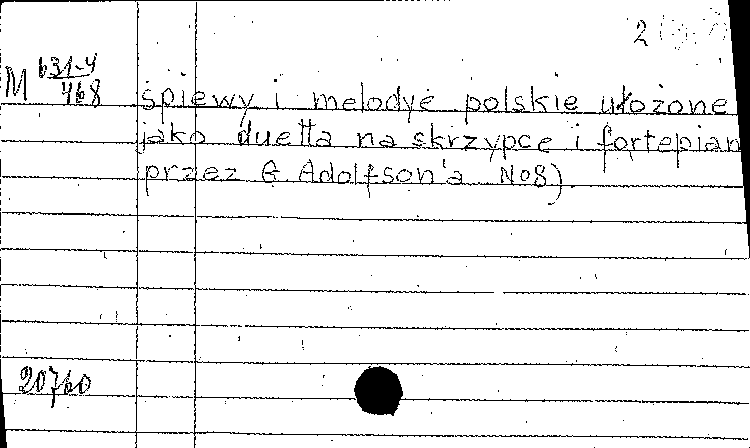 2
M 631-4
468
śpiewy i melodye polskie ułożone
jako duetta na skrzypce i fortepian
przez G Adolfson'a No8)
20760